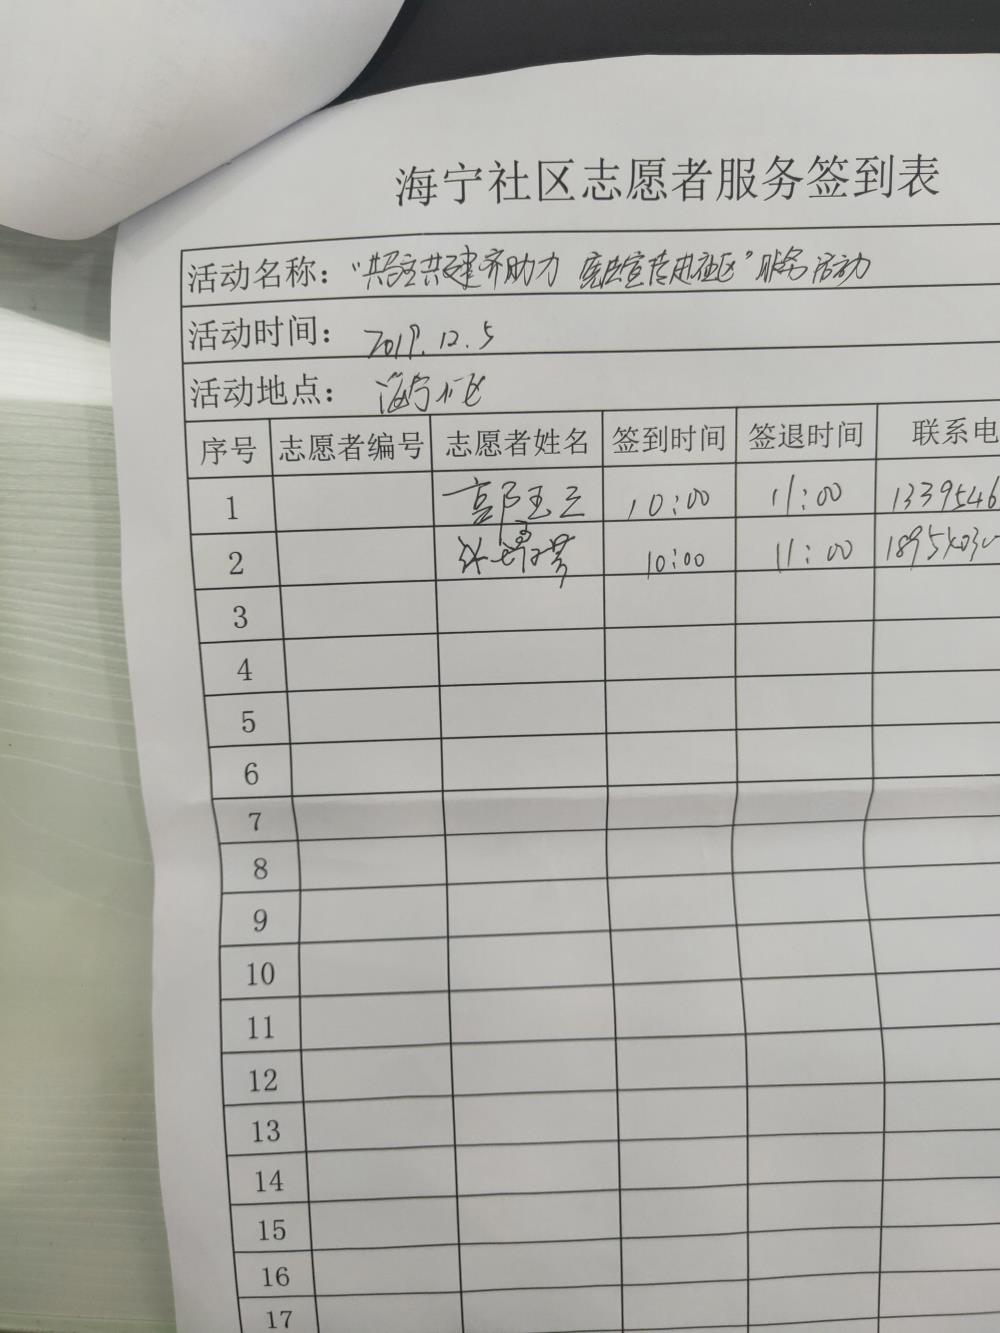 海宁社区志愿者服务签到表
活动名称：“共驻共建齐助力 宪法宣传进社区”服务活动
活动时间： 2019.12.5
活动地点： 海宁社区
序号 志愿者编号 志愿者姓名 签到时间 签退时间 联系电
1 郭玉兰 10:00 11:00 1339546
2 10:00 11:00 1895
3
4
5
6
7
8
9
10
11
12
13
14
15
16
17